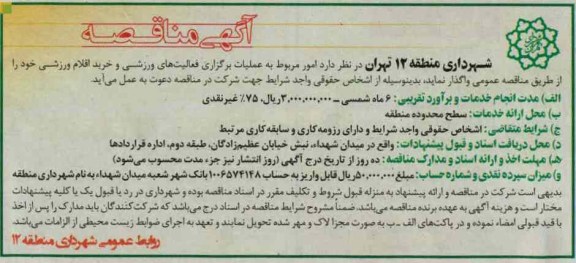 آگهی مناقصه
شهرداری منطقه ۱۲ تهران در نظر دارد امور مربوط به عملیات برگزاری فعالیت‌های ورزشی و خرید اقلام ورزشی خود را
از طریق مناقصه عمومی واگذار نماید، بدینوسیله از اشخاص حقوقی واجد شرایط جهت شرکت در مناقصه دعوت به عمل می‌آید.
الف) مدت انجام خدمات و برآورد تقریبی: ۶ ماه شمسی ـ ۳,۰۰۰,۰۰۰,۰۰۰ریال، ۷۵٪ غیرنقدی
ب) محل ارائه خدمات: سطح محدوده منطقه
ج) شرایط متقاضی: اشخاص حقوقی واجد شرایط و دارای رزومه کاری و سابقه کاری مرتبط
د) محل دریافت اسناد و قبول پیشنهادات: واقع در میدان شهداء، نبش خیابان عظیم‌زادگان، طبقه دوم، اداره قراردادها
هـ) مهلت اخذ و ارائه اسناد و مدارک مناقصه: ده روز از تاریخ درج آگهی (روز انتشار نیز جزء مدت محسوب می‌شود)
و) میزان سپرده نقدی و شماره حساب: مبلغ ۵۰,۰۰۰,۰۰۰ریال قابل واریز به حساب ۱۰۰۶۵۷۴۱۴۸ بانک شهر شعبه میدان شهداء به نام شهرداری منطقه
بدیهی است شرکت در مناقصه و ارائه پیشنهاد به منزله قبول شروط و تکلیف مقرر در اسناد مناقصه بوده و شهرداری در رد یا قبول یک یا کلیه پیشنهادات
مختار است و هزینه آگهی به عهده برنده مناقصه می‌باشد. ضمناً مشروح شرایط مناقصه در اسناد درج می‌باشد که شرکت‌کنندگان باید مدارک را پس از اخذ
با قید قبولی امضاء نموده و در پاکت‌های الف ـ ب به صورت مجزا لاک و مهر شده تحویل نمایند و تعهد به اجرای ضوابط زیست محیطی از الزامات می‌باشد.
روابط عمومی شهرداری منطقه ۱۲